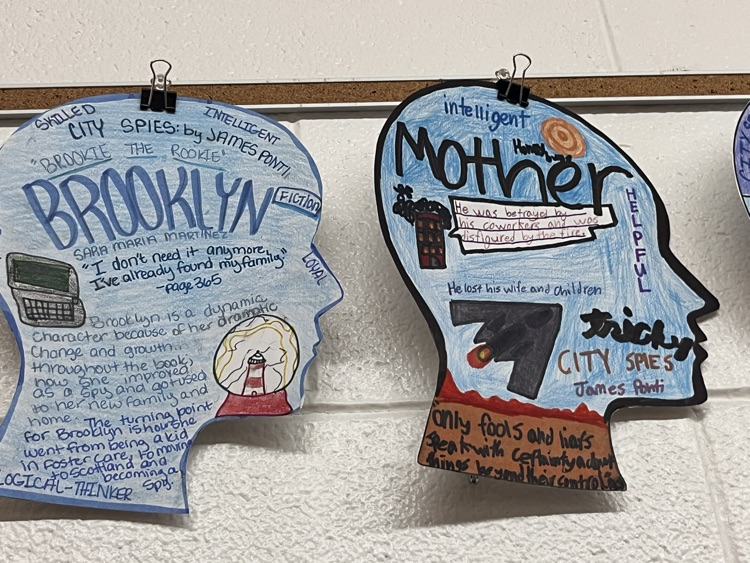 SKILLED
INTELLIGENT
CITY SPIES: by JAMES PONTI
"BROOKIE THE ROOKIE"
BROOKLYN
FICTION
SARA MARIA MARTINEZ
"I don't need it anymore,
I've already found my family."
-page 365
LOYAL
Brooklyn is a dynamic
character because of her dramatic
change and growth
throughout the book,
how she improved
as a spy and got used
to her new family and
home. The turning point
for Brooklyn is how she
went from being a kid
in foster care, to moving
to Scotland and
becoming a
spy.
LOGICAL-THINKER
intelligent
Mother
He was betrayed by
his coworkers and was
disfigured by the fire.
HELPFUL
He lost his wife and children
tricky
CITY SPIES
James Ponti
only fools and liars
speak with certainty about
things beyond their control